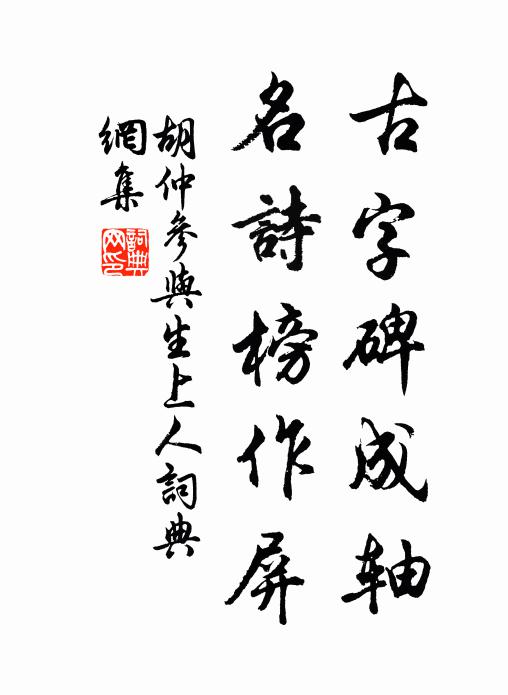 古字碑成轴
名詩榜作屏
胡仲參與生上人詞典
網集
詞典網印